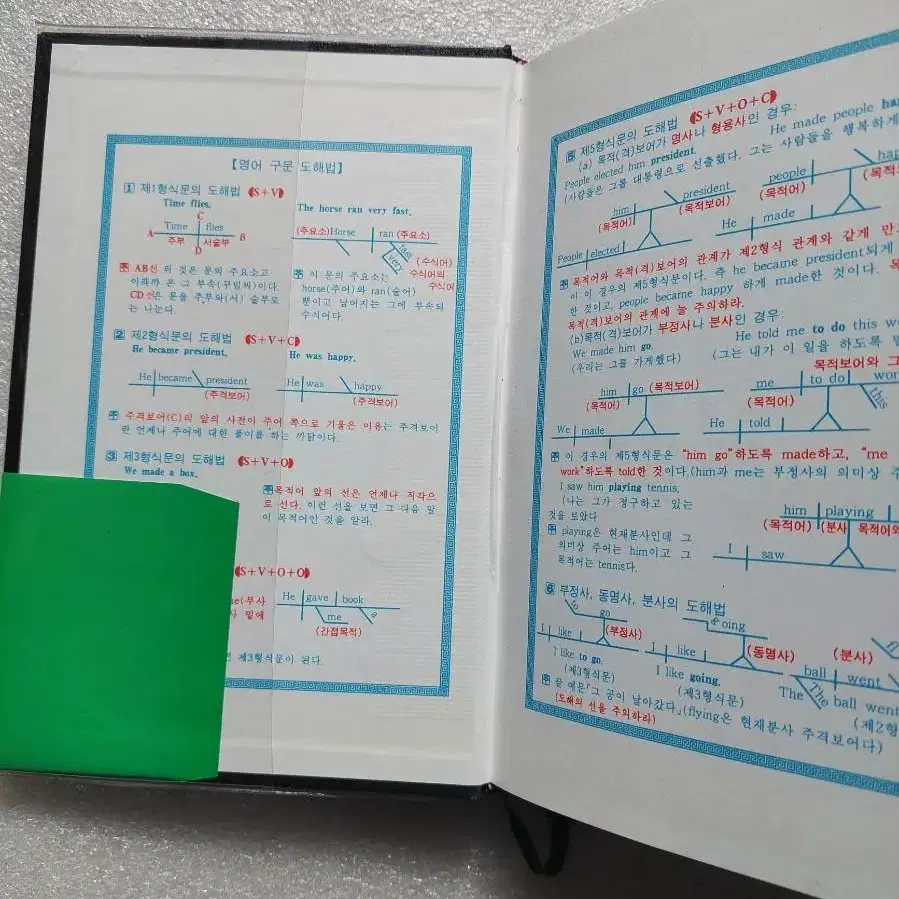 【영어 구문 도해법】
1 제1형식문의 도해법 (S+V)
Time flies.
C
A Time flies B
주부 서술부
D
AB선 위 것은 문의 주요소고
아래까 은 그 부속(꾸밈싸)이다.
CD선은 문을 주부와(서) 술부로
는 나눈다.
The horse ran very fast.
(주요소)Horse ran (주요소)
fast (수식어)
very 수식어의
수식어
이 문의 주요소는
horse(주어)와 ran(술어)
뿐이고 남어지는 그에 부속되
수식어다.
2 제2형식문의 도해법 (S+V+C)
He became president. He was happy.
He became president
(주격보어)
He was happy
(주격보어)
주격보어(C)의 앞의 사전이 주어 쪽으로 기울은 이유는 주격보어
란 언제나 주어에 대한 풀이를 하는 까닭이다.
3 제3형식문의 도해법 (S+V+O)
We made a box.
목적어 앞의 선은 언제나 직각으
로 선다. 이런 선을 보면 그 다음 말
이 목적어인 것을 알라.
S+V+O+O)
me(부사
사 밑에
He gave book
me a
(간접목적)
면 제3형식문이 된다.
5 제5형식문의 도해법 (S+V+O+C)
(a) 목적(격)보어가 명사나 형용사인 경우:
People elected him president. He made people
(사람들은 그를 대통령으로 선출했다. 그는 사람들을 행복하게
him president
(목적어) (목적보어)
People elected
people hap
(목적어) (목적
He made
목적어와 목적(격)보어의 관계가 제2형식 관계와 같게 만
이 이 경우의 제5형식문이다. 즉 he became president되게
한 것이고, people became happy 하게 made한 것이다. 목
적(격)보어의 관계에 늘 주의하라.
(b)목적(격)보어가 부정사나 분사인 경우:
We made him go. He told me to do this
(우리는 그를 가게했다) (그는 내가 이 일을 하도록
목적보어와 그
him go (목적보어)
(목적어)
We made
me to do wor
(목적어) this
He told
이 경우의 제5형식문은 "him go"하도록 made하고, "me
work"하도록 told한 것이다.(him과 me는 부정사의 의미상
I saw him playing tennis.
(나는 그가 정구하고 있는
것을 보았다
playing은 현재분사인데 그
의미상 주어는 him이고 그
목적어는 tennis다.
him playing
(목적어) (분사 목적어와
I saw
6 부정사, 동명사, 분사의 도해법
to go
I like (부정사)
I like to go.
(제3형식문)
going
I like (동명사)
I like going.
(제3형식문)
(분사)
ball went
The
The ball went
(제2형
끝 예문「그 공이 날아갔다」(flying은 현재분사 주격보어다)
(도해의 선을 주의하라)